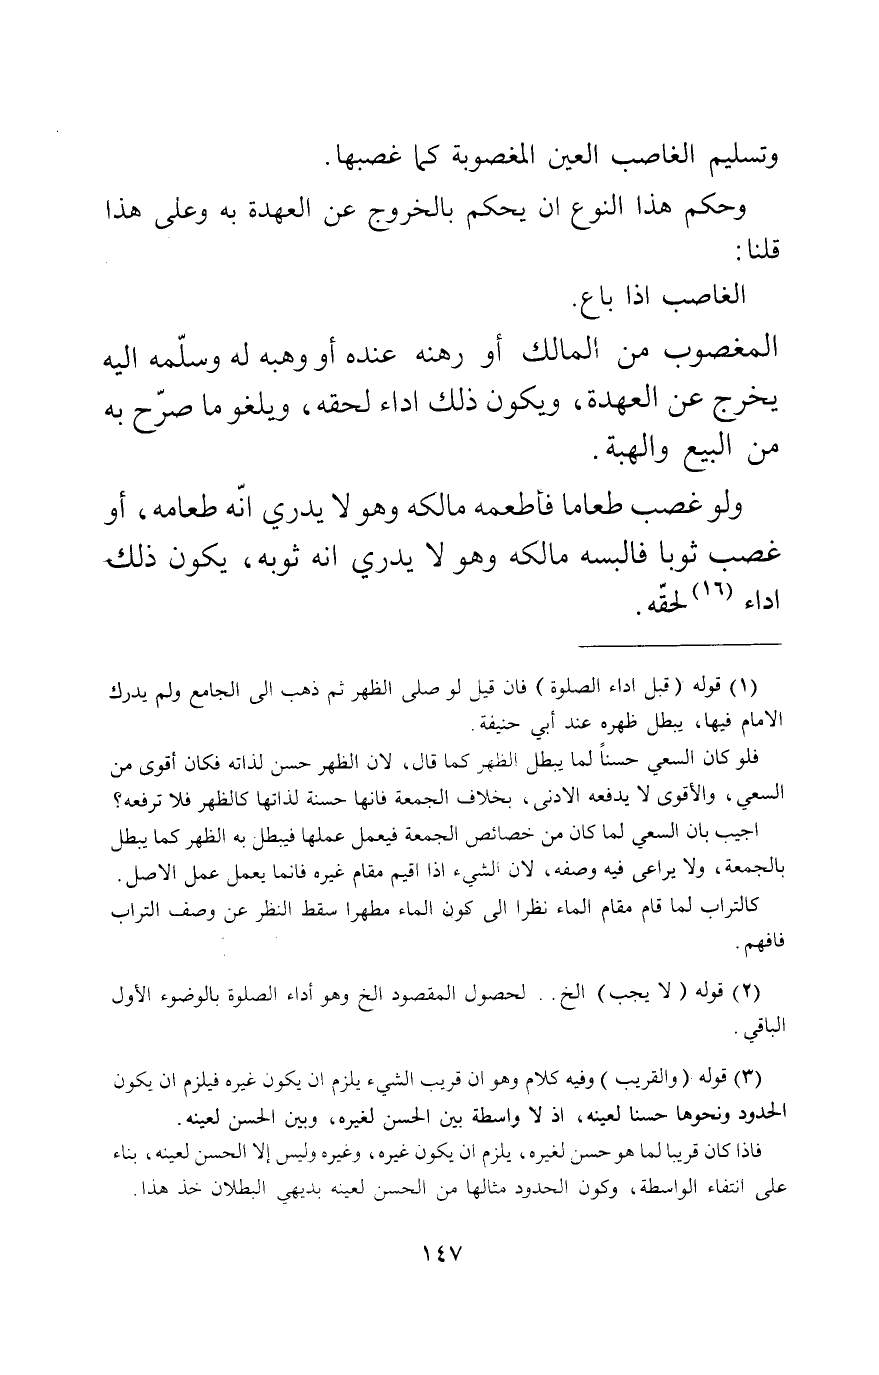 وتسليم الغاصب العين المغصوبة كما غصبها.
وحكم هذا النوع ان يحكم بالخروج عن العهدة به وعلى هذا
قلنا:
الغاصب اذا باع.
المغصوب من المالك أو رهنه عنده أو وهبه له وسلّمه اليه
يخرج عن العهدة، ويكون ذلك اداء لحقه، ويلغو ما صرّح به
من البيع والهبة.
ولو غصب طعاما فأطعمه مالكه وهو لا يدري انّه طعامه، أو
غصب ثوبا فالبسه مالكه وهو لا يدري انه ثوبه، يكون ذلك
اداء (١٦) لحقّه.
(١) قوله (قبل اداء الصلوة) فان قيل لو صلى الظهر ثم ذهب الى الجامع ولم يدرك
الامام فيها، يبطل ظهره عند أبي حنيفة.
فلو كان السعي حسناً لما يبطل الظهر كما قال، لان الظهر حسن لذاته فكان أقوى من
السعي، والأقوى لا يدفعه الادنى، بخلاف الجمعة فانها حسنة لذاتها كالظهر فلا ترفعه؟
اجيب بان السعي لما كان من خصائص الجمعة فيعمل عملها فيبطل به الظهر كما يبطل
بالجمعة، ولا يراعى فيه وصفه، لان الشيء اذا اقيم مقام غيره فانما يعمل عمل الاصل.
كالتراب لما قام مقام الماء نظرا الى كون الماء مطهرا سقط النظر عن وصف التراب
فافهم.
(٢) قوله (لا يجب) الخ. . لحصول المقصود الخ وهو أداء الصلوة بالوضوء الأول
الباقي.
(٣) قوله (والقريب) وفيه كلام وهو ان قريب الشيء يلزم ان يكون غيره فيلزم ان يكون
الحدود ونحوها حسنا لعينه، اذ لا واسطة بين الحسن لغيره، وبين الحسن لعينه.
فاذا كان قريبا لما هو حسن لغيره، يلزم ان يكون غيره، وغيره وليس إلا الحسن لعينه، بناء
على انتفاء الواسطة، وكون الحدود مثالها من الحسن لعينه بديهي البطلان خذ هذا.
١٤٧